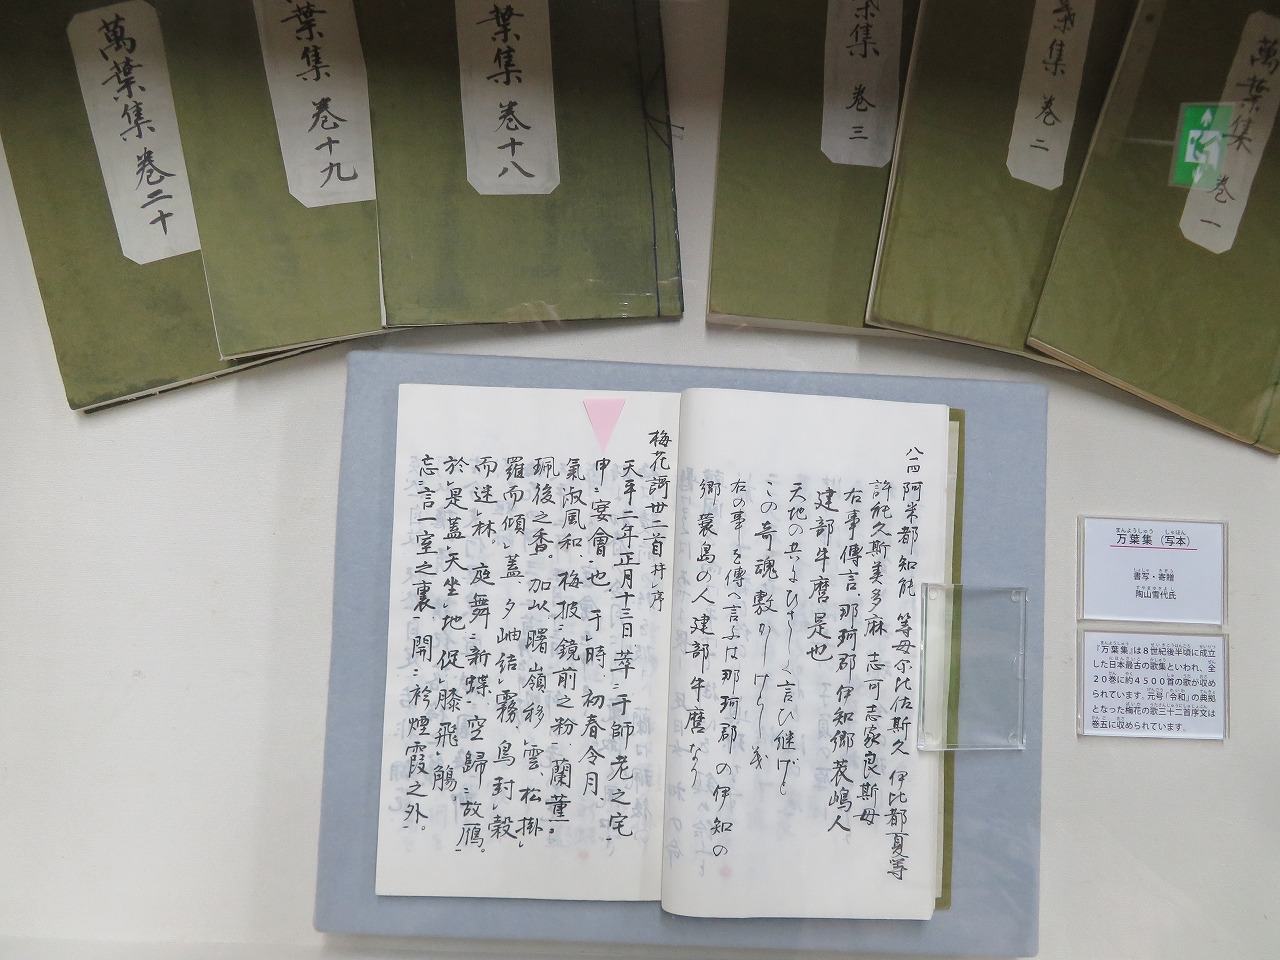 萬葉集 巻二十
葉集 巻十九
葉集 巻十八
葉集 巻三
葉集 巻二
萬葉集 巻一
八一四 阿米都知能 等母尓比佐斯久 伊比都夏等
許能久斯美多麻 志可志家良斯母
右事傳言、那珂郡伊知郷蓑嶋人
建部牛麿是也
天地の共にひさしく言ひ継げと
この奇魂敷かしけらし茂
右の事を傳へ言ふは那珂郡の伊知の
郷蓑島の人建部牛麿なり
梅花謌卅二首并序
天平二年正月十三日萃二于師老之宅一
申二宴會一也、于レ時初春令月、
氣淑風和、梅披二鏡前之粉一、蘭薫二
珮後之香一。加以曙嶺移レ雲、松掛レ
羅而傾レ蓋、夕岫結レ霧、鳥封レ穀
而迷レ林。庭舞二新蝶一空歸二故鴈一。
於レ是蓋レ天坐レ地、促レ膝飛レ觴。
忘二言一室之裏一開二衿煙霞之外一。
まんようしゅう しゃほん
万葉集（写本）
しょしゃ きぞう
書写・寄贈
陶山雪代氏
『万葉集』は８世紀後半頃に成立
した日本最古の歌集といわれ、全
２０巻に約４５００首の歌が収め
られています。元号「令和」の典拠
となった梅花の歌三十二首序文は
巻五に収められています。